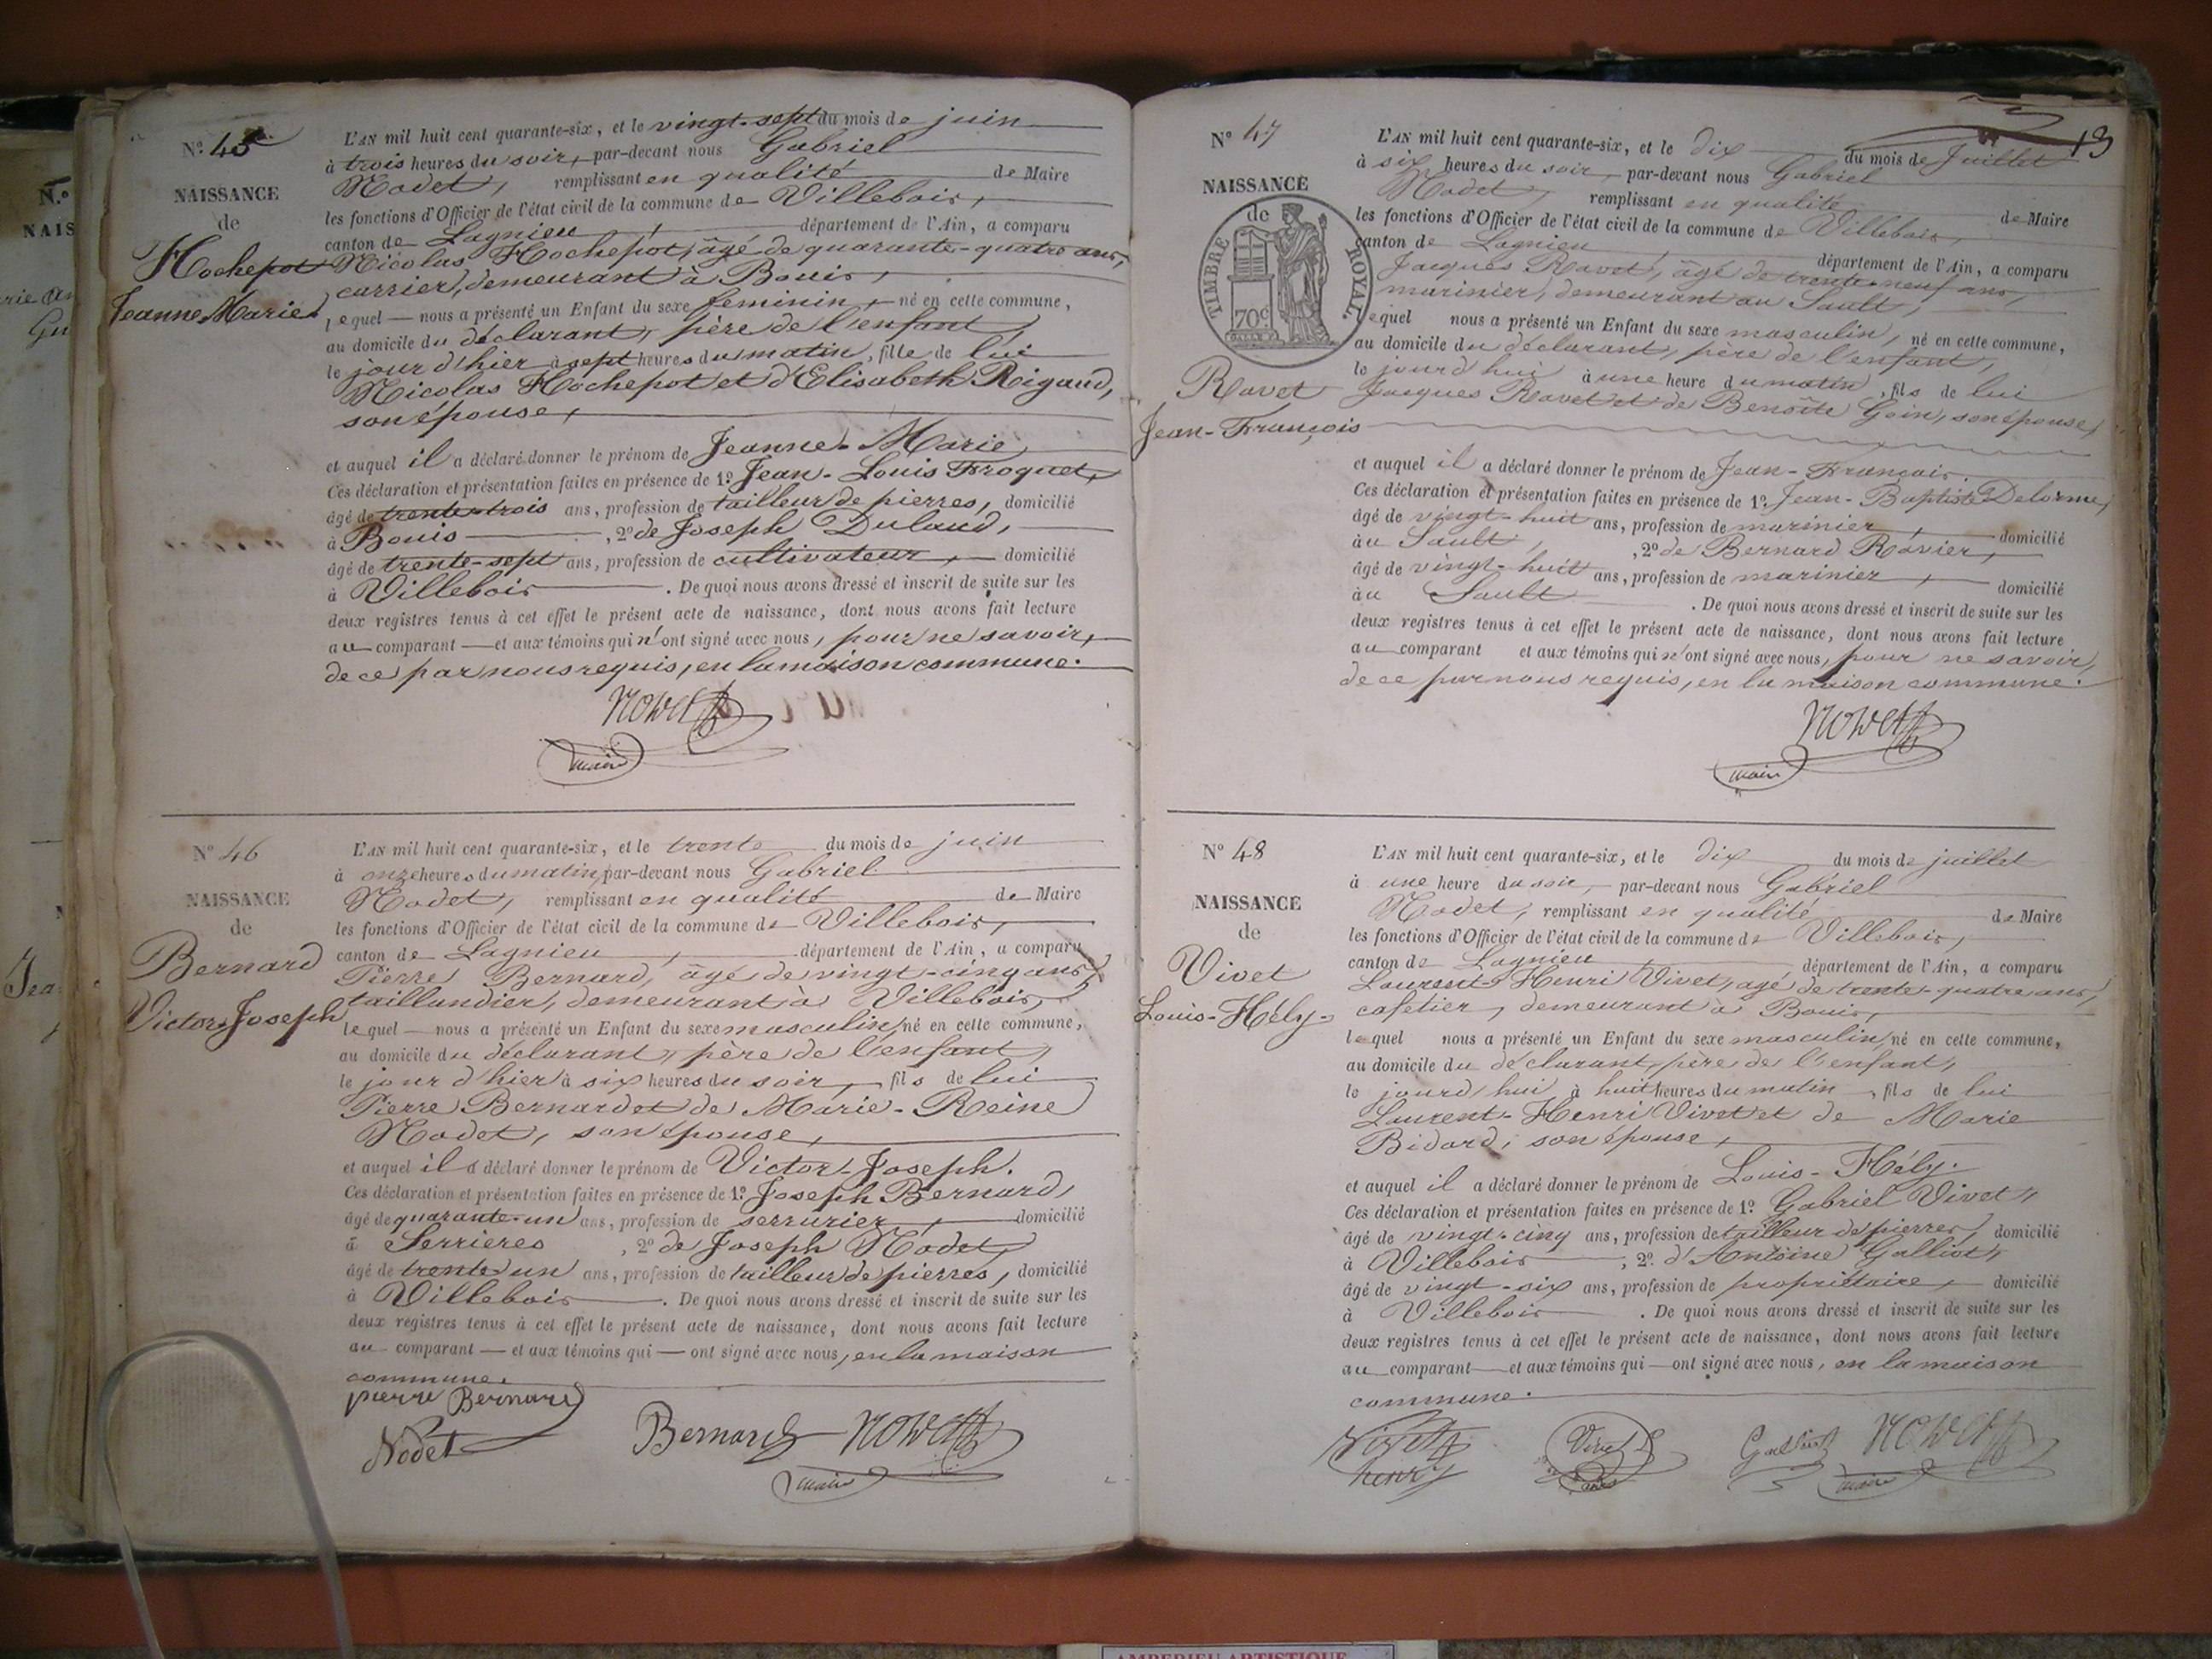 N.º
NAIS
N.º 45
NAISSANCE
de
Hochepot
Jeanne-Marie
L'AN mil huit cent quarante-six, et le vingt-sept du mois de juin
à trois heures du soir, par-devant nous Gabriel
Nodet, remplissant en qualité de Maire
les fonctions d'Officier de l'état civil de la commune de Villebois,
canton de Lagnieu, département de l'Ain, a comparu
Nicolas Hochepot, âgé de quarante-quatre ans,
carrier, demeurant à Bouis,
lequel nous a présenté un Enfant du sexe feminin, né en cette commune,
au domicile du déclarant, père de l'enfant,
le jour d'hier à sept heures du matin, fille de lui
Nicolas Hochepot et d'Elisabeth Rigaud,
son épouse,
et auquel il a déclaré donner le prénom de Jeanne-Marie
Ces déclaration et présentation faites en présence de 1º Jean-Louis Froquet,
âgé de trente-trois ans, profession de tailleur de pierres, domicilié
à Bouis, 2º de Joseph Dulaud,
âgé de trente-sept ans, profession de cultivateur, domicilié
à Villebois. De quoi nous avons dressé et inscrit de suite sur les
deux registres tenus à cet effet le présent acte de naissance, dont nous avons fait lecture
au comparant et aux témoins qui n'ont signé avec nous, pour ne savoir,
de ce par nous requis, en la maison commune.
Nodet
maire
Nº 46
NAISSANCE
de
Bernard
Victor-Joseph
L'AN mil huit cent quarante-six, et le trente du mois de juin
à onze heures du matin, par-devant nous Gabriel
Nodet, remplissant en qualité de Maire
les fonctions d'Officier de l'état civil de la commune de Villebois,
canton de Lagnieu, département de l'Ain, a comparu
Pierre Bernard, âgé de vingt-cinq ans,
taillandier, demeurant à Villebois,
lequel nous a présenté un Enfant du sexe masculin, né en cette commune,
au domicile du déclarant, père de l'enfant,
le jour d'hier à six heures du soir, fils de lui
Pierre Bernard et de Marie-Reine
Nodet, son épouse,
et auquel il a déclaré donner le prénom de Victor-Joseph.
Ces déclaration et présentation faites en présence de 1º Joseph Bernard,
âgé de quarante-un ans, profession de serrurier, domicilié
à Serrieres, 2º de Joseph Nodet,
âgé de trente un ans, profession de tailleur de pierres, domicilié
à Villebois. De quoi nous avons dressé et inscrit de suite sur les
deux registres tenus à cet effet le présent acte de naissance, dont nous avons fait lecture
au comparant et aux témoins qui ont signé avec nous, en la maison
commune.
pierre Bernard
Nodet Bernard Nodet
maire
13
Nº 47
NAISSANCE
de
TIMBRE ROYAL
70c
Ravet
Jean-François
L'AN mil huit cent quarante-six, et le dix du mois de Juillet
à six heures du soir, par-devant nous Gabriel
Nodet, remplissant en qualité de Maire
les fonctions d'Officier de l'état civil de la commune de Villebois,
canton de Lagnieu département de l'Ain, a comparu
Jacques Ravet, âgé de trente-neuf ans,
marinier, demeurant au Sault,
lequel nous a présenté un Enfant du sexe masculin, né en cette commune,
au domicile du déclarant, père de l'enfant,
le jourd'hui à une heure du matin, fils de lui
Jacques Ravet et de Benoîte Goin, son épouse,
et auquel il a déclaré donner le prénom de Jean-François.
Ces déclaration et présentation faites en présence de 1º Jean-Baptiste Delorme,
âgé de vingt-huit ans, profession de marinier, domicilié
au Sault, 2º de Bernard Ravier,
âgé de vingt-huit ans, profession de marinier, domicilié
au Sault. De quoi nous avons dressé et inscrit de suite sur les
deux registres tenus à cet effet le présent acte de naissance, dont nous avons fait lecture
au comparant et aux témoins qui n'ont signé avec nous, pour ne savoir,
de ce par nous requis, en la maison commune.
Nodet
maire
Nº 48
NAISSANCE
de
Vivet
Louis-Hély
L'AN mil huit cent quarante-six, et le dix du mois de juillet
à une heure du soir, par-devant nous Gabriel
Nodet, remplissant en qualité de Maire
les fonctions d'Officier de l'état civil de la commune de Villebois,
canton de Lagnieu département de l'Ain, a comparu
Laurent-Henri Vivet, âgé de trente-quatre ans,
cafetier, demeurant à Bouis,
lequel nous a présenté un Enfant du sexe masculin, né en cette commune,
au domicile du déclarant, père de l'enfant,
le jourd'hui à huit heures du matin, fils de lui
Laurent-Henri Vivet et de Marie
Bidard, son épouse,
et auquel il a déclaré donner le prénom de Louis-Hély.
Ces déclaration et présentation faites en présence de 1º Gabriel Vivet,
âgé de vingt-cinq ans, profession de tailleur de pierres, domicilié
à Villebois, 2º d'Antoine Galliot,
âgé de vingt-six ans, profession de propriétaire, domicilié
à Villebois. De quoi nous avons dressé et inscrit de suite sur les
deux registres tenus à cet effet le présent acte de naissance, dont nous avons fait lecture
au comparant et aux témoins qui ont signé avec nous, en la maison
commune.
Vivet Vivet Nodet
henri maire
AMBERIEU ARTISTIQUE